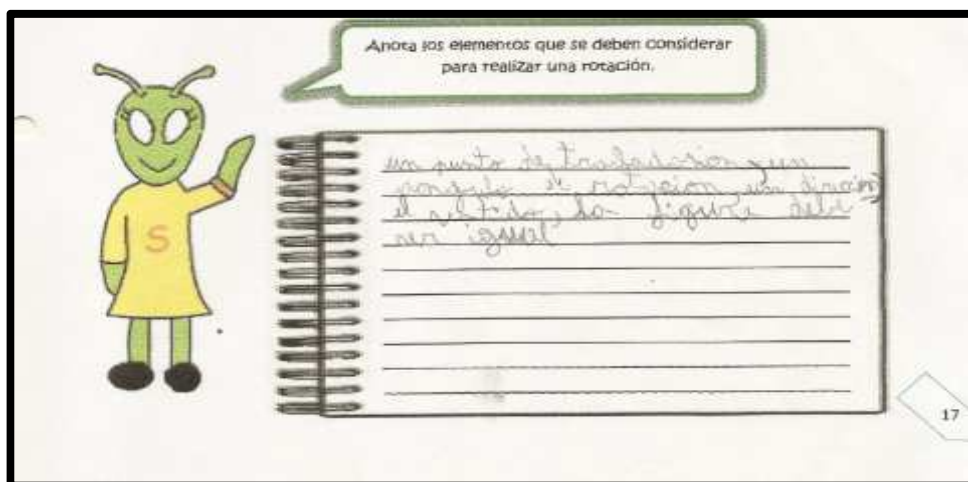 Anota los elementos que se deben considerar
para realizar una rotación.
S
un punto de trasladasion y un
de rotacion, un
el sentido, la figura debe
ser igual
17